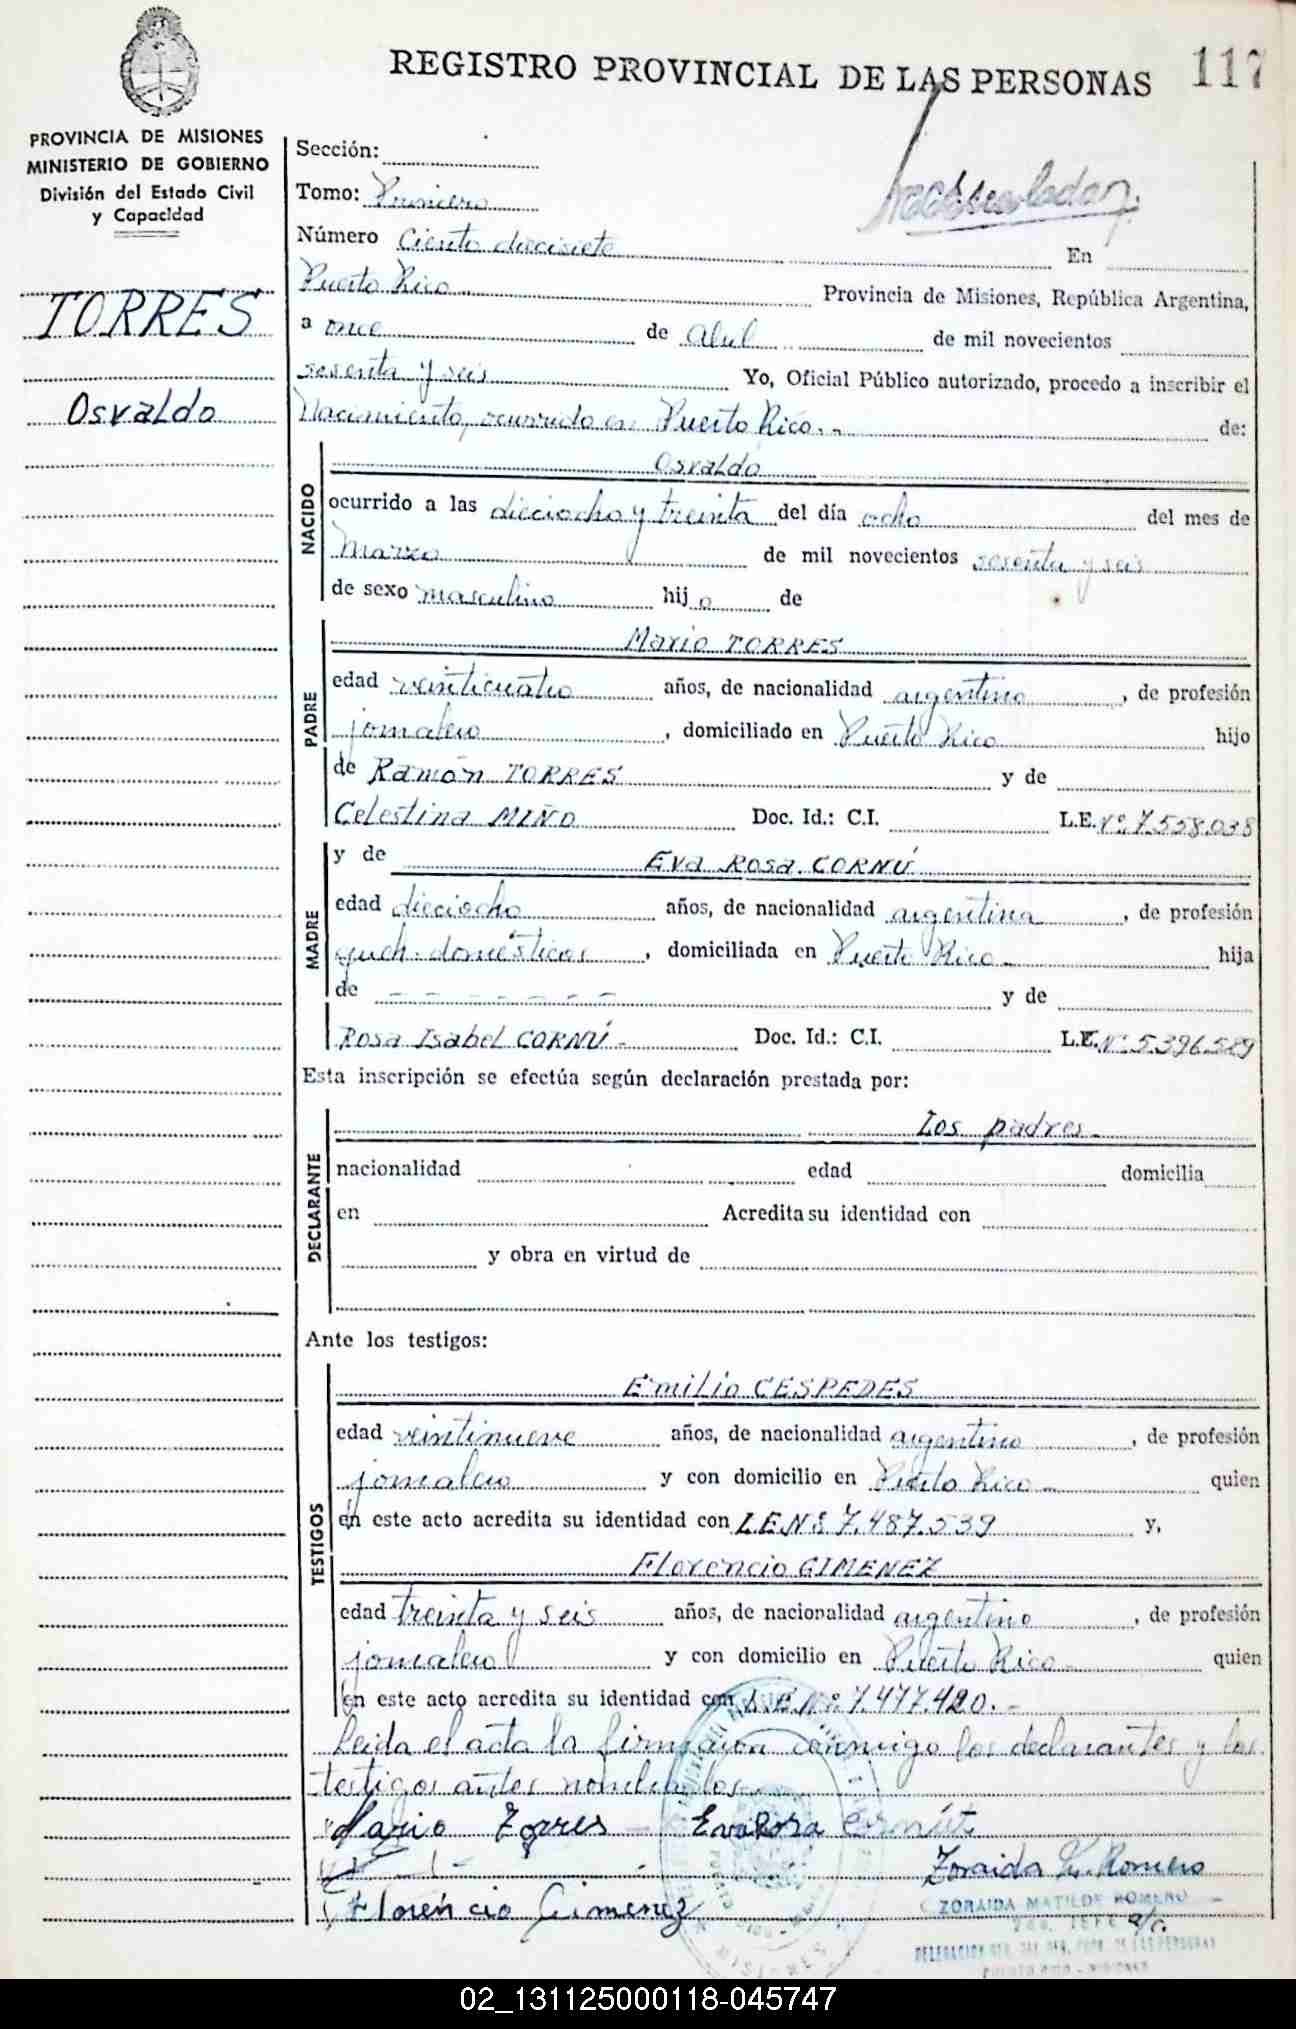 REGISTRO PROVINCIAL DE LAS PERSONAS 117
PROVINCIA DE MISIONES
MINISTERIO DE GOBIERNO
División del Estado Civil
y Capacidad
TORRES
Osvaldo
Sección:
Tomo: Primero
Número Ciento diecisiete En
Puerto Rico Provincia de Misiones, República Argentina,
a once de Abril de mil novecientos
sesenta y seis Yo, Oficial Público autorizado, procedo a inscribir el
Nacimiento, ocurrido en Puerto Rico.- de:
NACIDO
Osvaldo
ocurrido a las dieciocho y treinta del día ocho del mes de
Marzo de mil novecientos sesenta y seis
de sexo masculino hijo de
PADRE
Mario TORRES
edad veinticuatro años, de nacionalidad argentino, de profesión
jornalero, domiciliado en Puerto Rico hijo
de Ramón TORRES y de
Celestina MIÑO Doc. Id.: C.I. L.E. Nº 7.558.038
MADRE
y de Eva Rosa CORNÚ
edad dieciocho años, de nacionalidad argentina, de profesión
queh. domésticos, domiciliada en Puerto Rico- hija
de - - - - - - - y de
Rosa Isabel CORNÚ- Doc. Id.: C.I. L.E. Nº 5.396.589
Esta inscripción se efectúa según declaración prestada por:
DECLARANTE
Los padres-
nacionalidad edad domicilia
en Acredita su identidad con
y obra en virtud de
Ante los testigos:
TESTIGOS
Emilio CESPEDES
edad veintinueve años, de nacionalidad argentino, de profesión
jornalero y con domicilio en Puerto Rico- quien
en este acto acredita su identidad con L.E.Nº 7.487.539 y,
Florencio GIMENEZ
edad treinta y seis años, de nacionalidad argentino, de profesión
jornalero y con domicilio en Puerto Rico- quien
en este acto acredita su identidad con L.E.Nº 7.477.420.-
Leida el acta la firman conmigo los declarantes y los
testigos antes nombrados
Mario Torres - Eva Rosa Cornú
Zoraida M. Romero
Florencio Gimenez
ZORAIDA MATILDE ROMERO
PUERTO RICO - MISIONES
02_131125000118-045747